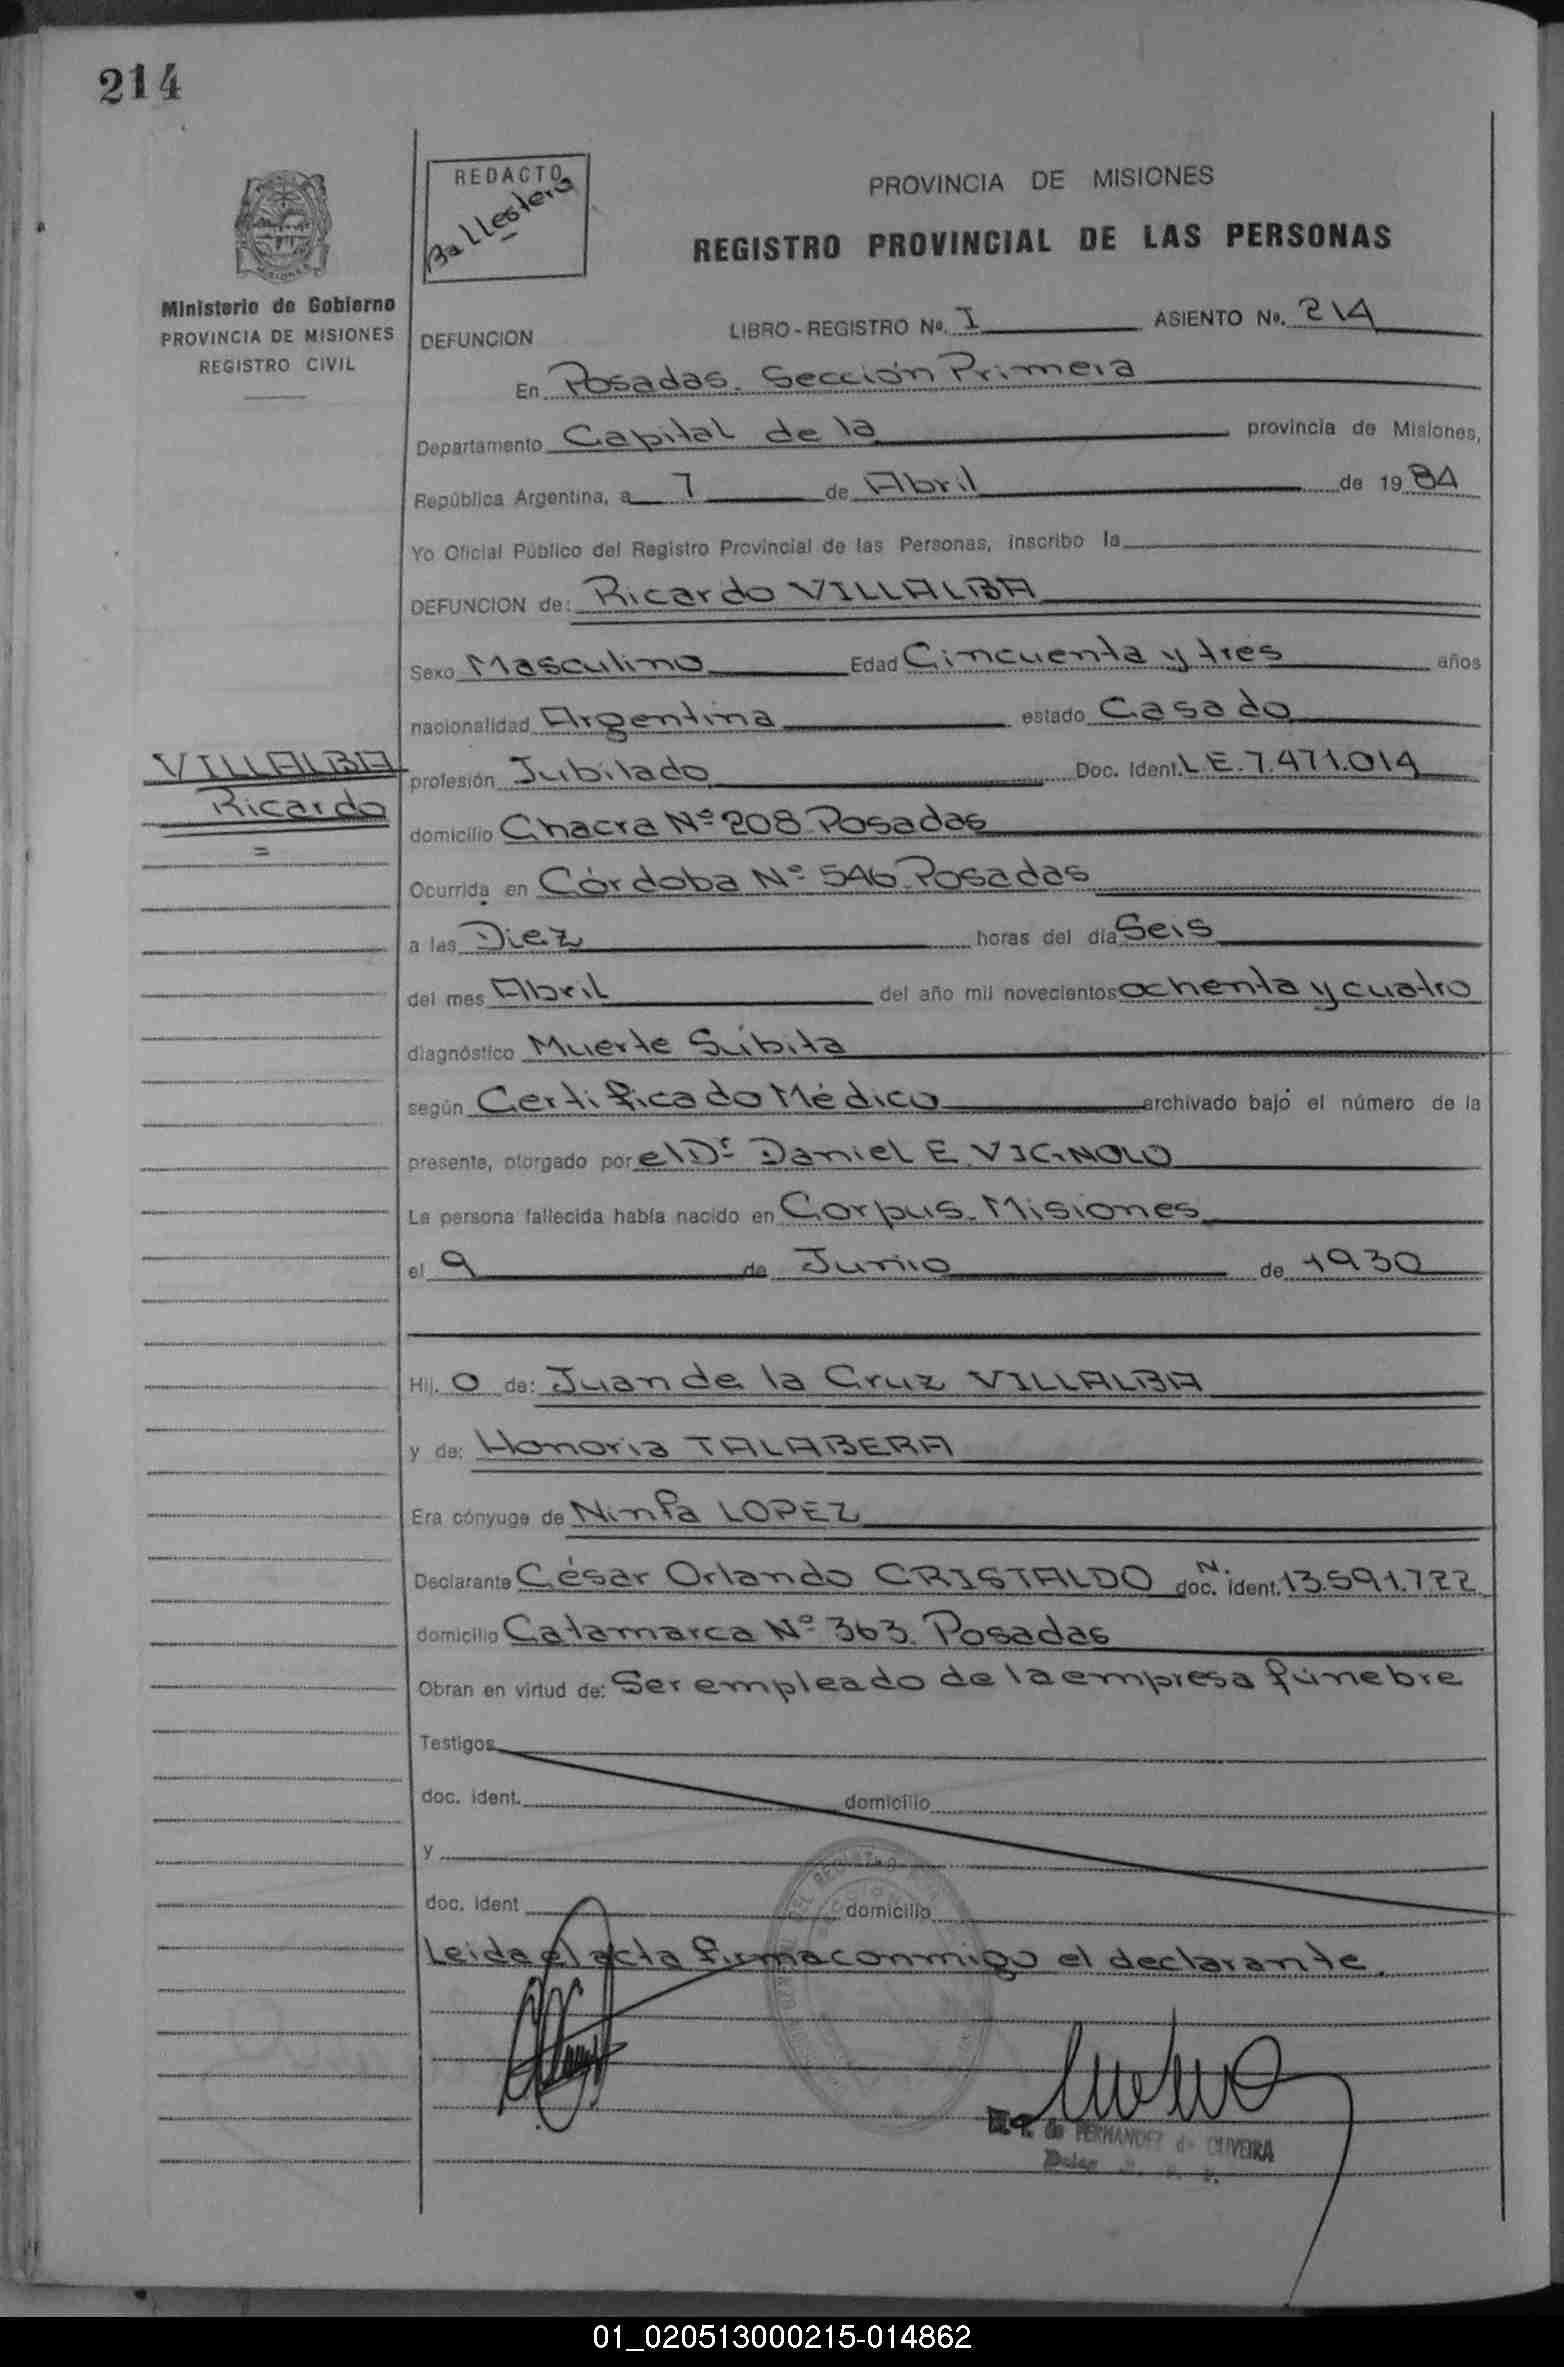 214
REDACTO
Ballestero
PROVINCIA DE MISIONES
REGISTRO PROVINCIAL DE LAS PERSONAS
Ministerio de Gobierno
PROVINCIA DE MISIONES
REGISTRO CIVIL
DEFUNCION LIBRO-REGISTRO Nº. I ASIENTO Nº. 214
En Posadas. Sección Primera
Departamento Capital de la provincia de Misiones,
República Argentina, a 7 de Abril de 1984
Yo Oficial Público del Registro Provincial de las Personas, inscribo la
DEFUNCION de: Ricardo VILLALBA
Sexo Masculino Edad Cincuenta y tres años
nacionalidad Argentina estado Casado
VILLALBA
Ricardo
=
profesión Jubilado Doc. Ident. L.E. 7.471.014
domicilio Chacra Nº 208 Posadas
Ocurrida en Córdoba Nº 546. Posadas
a las Diez horas del día Seis
del mes Abril del año mil novecientos ochenta y cuatro
diagnóstico Muerte Súbita
según Certificado Médico archivado bajo el número de la
presente, otorgado por el Dr Daniel E. VIGNOLO
La persona fallecida había nacido en Corpus. Misiones
el 9 de Junio de 1930
Hij. o de: Juan de la Cruz VILLALBA
y de: Honoria TALABERA
Era cónyuge de Ninfa LOPEZ
Declarante César Orlando CRISTALDO doc. N. ident. 13.591.722
domicilio Catamarca Nº 363. Posadas
Obran en virtud de: Ser empleado de la empresa fúnebre
Testigos
doc. ident. domicilio
y
doc. ident domicilio
Leida el acta firma conmigo el declarante.
de FERNANDEZ de OLIVEIRA
01_020513000215-014862